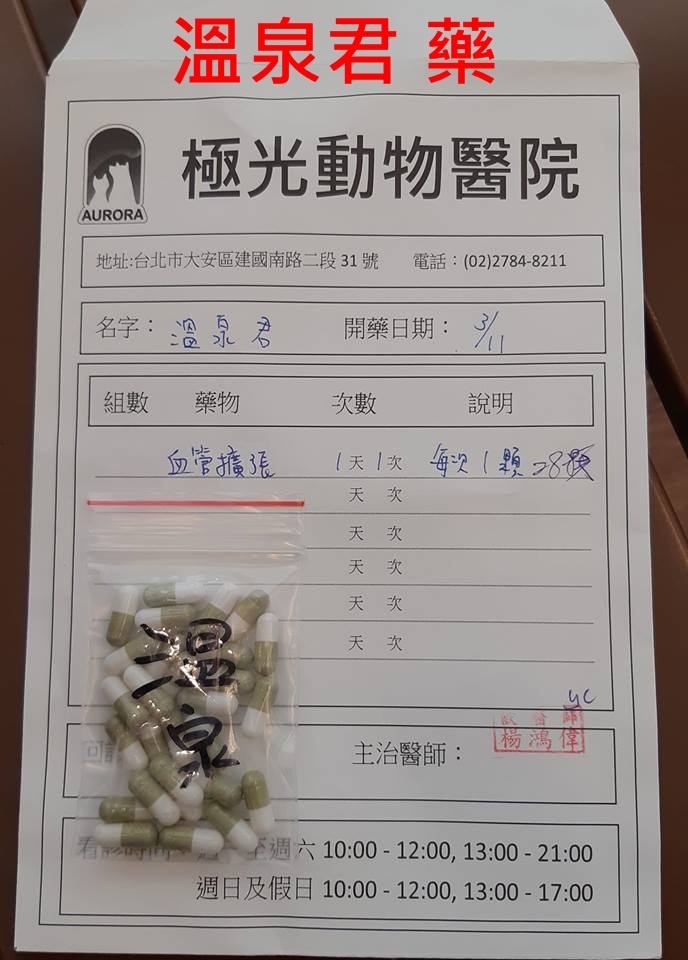 溫泉君 藥
AURORA
極光動物醫院
地址:台北市大安區建國南路二段 31 號 電話：(02)2784-8211
名字： 溫泉君 開藥日期： 3/11
組數 藥物 次數 說明
血管擴張 1天1次 每次1顆 28顆
天 次
天 次
天 次
天 次
天 次
溫泉
yc
獸醫師
楊鴻偉
回診
主治醫師：
看診時間 至週六 10:00 - 12:00, 13:00 - 21:00
週日及假日 10:00 - 12:00, 13:00 - 17:00